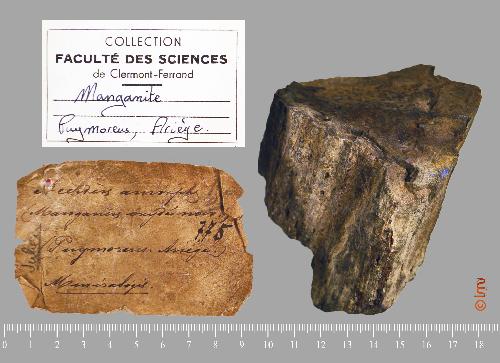 COLLECTION
FACULTÉ DES SCIENCES
de Clermont-Ferrand
Manganite
Puymorens, Ariège.
(Puymorens. Ariège)
715
Minéralogie
© lmv
0 1 2 3 4 5 6 7 8 9 10 11 12 13 14 15 16 17 18